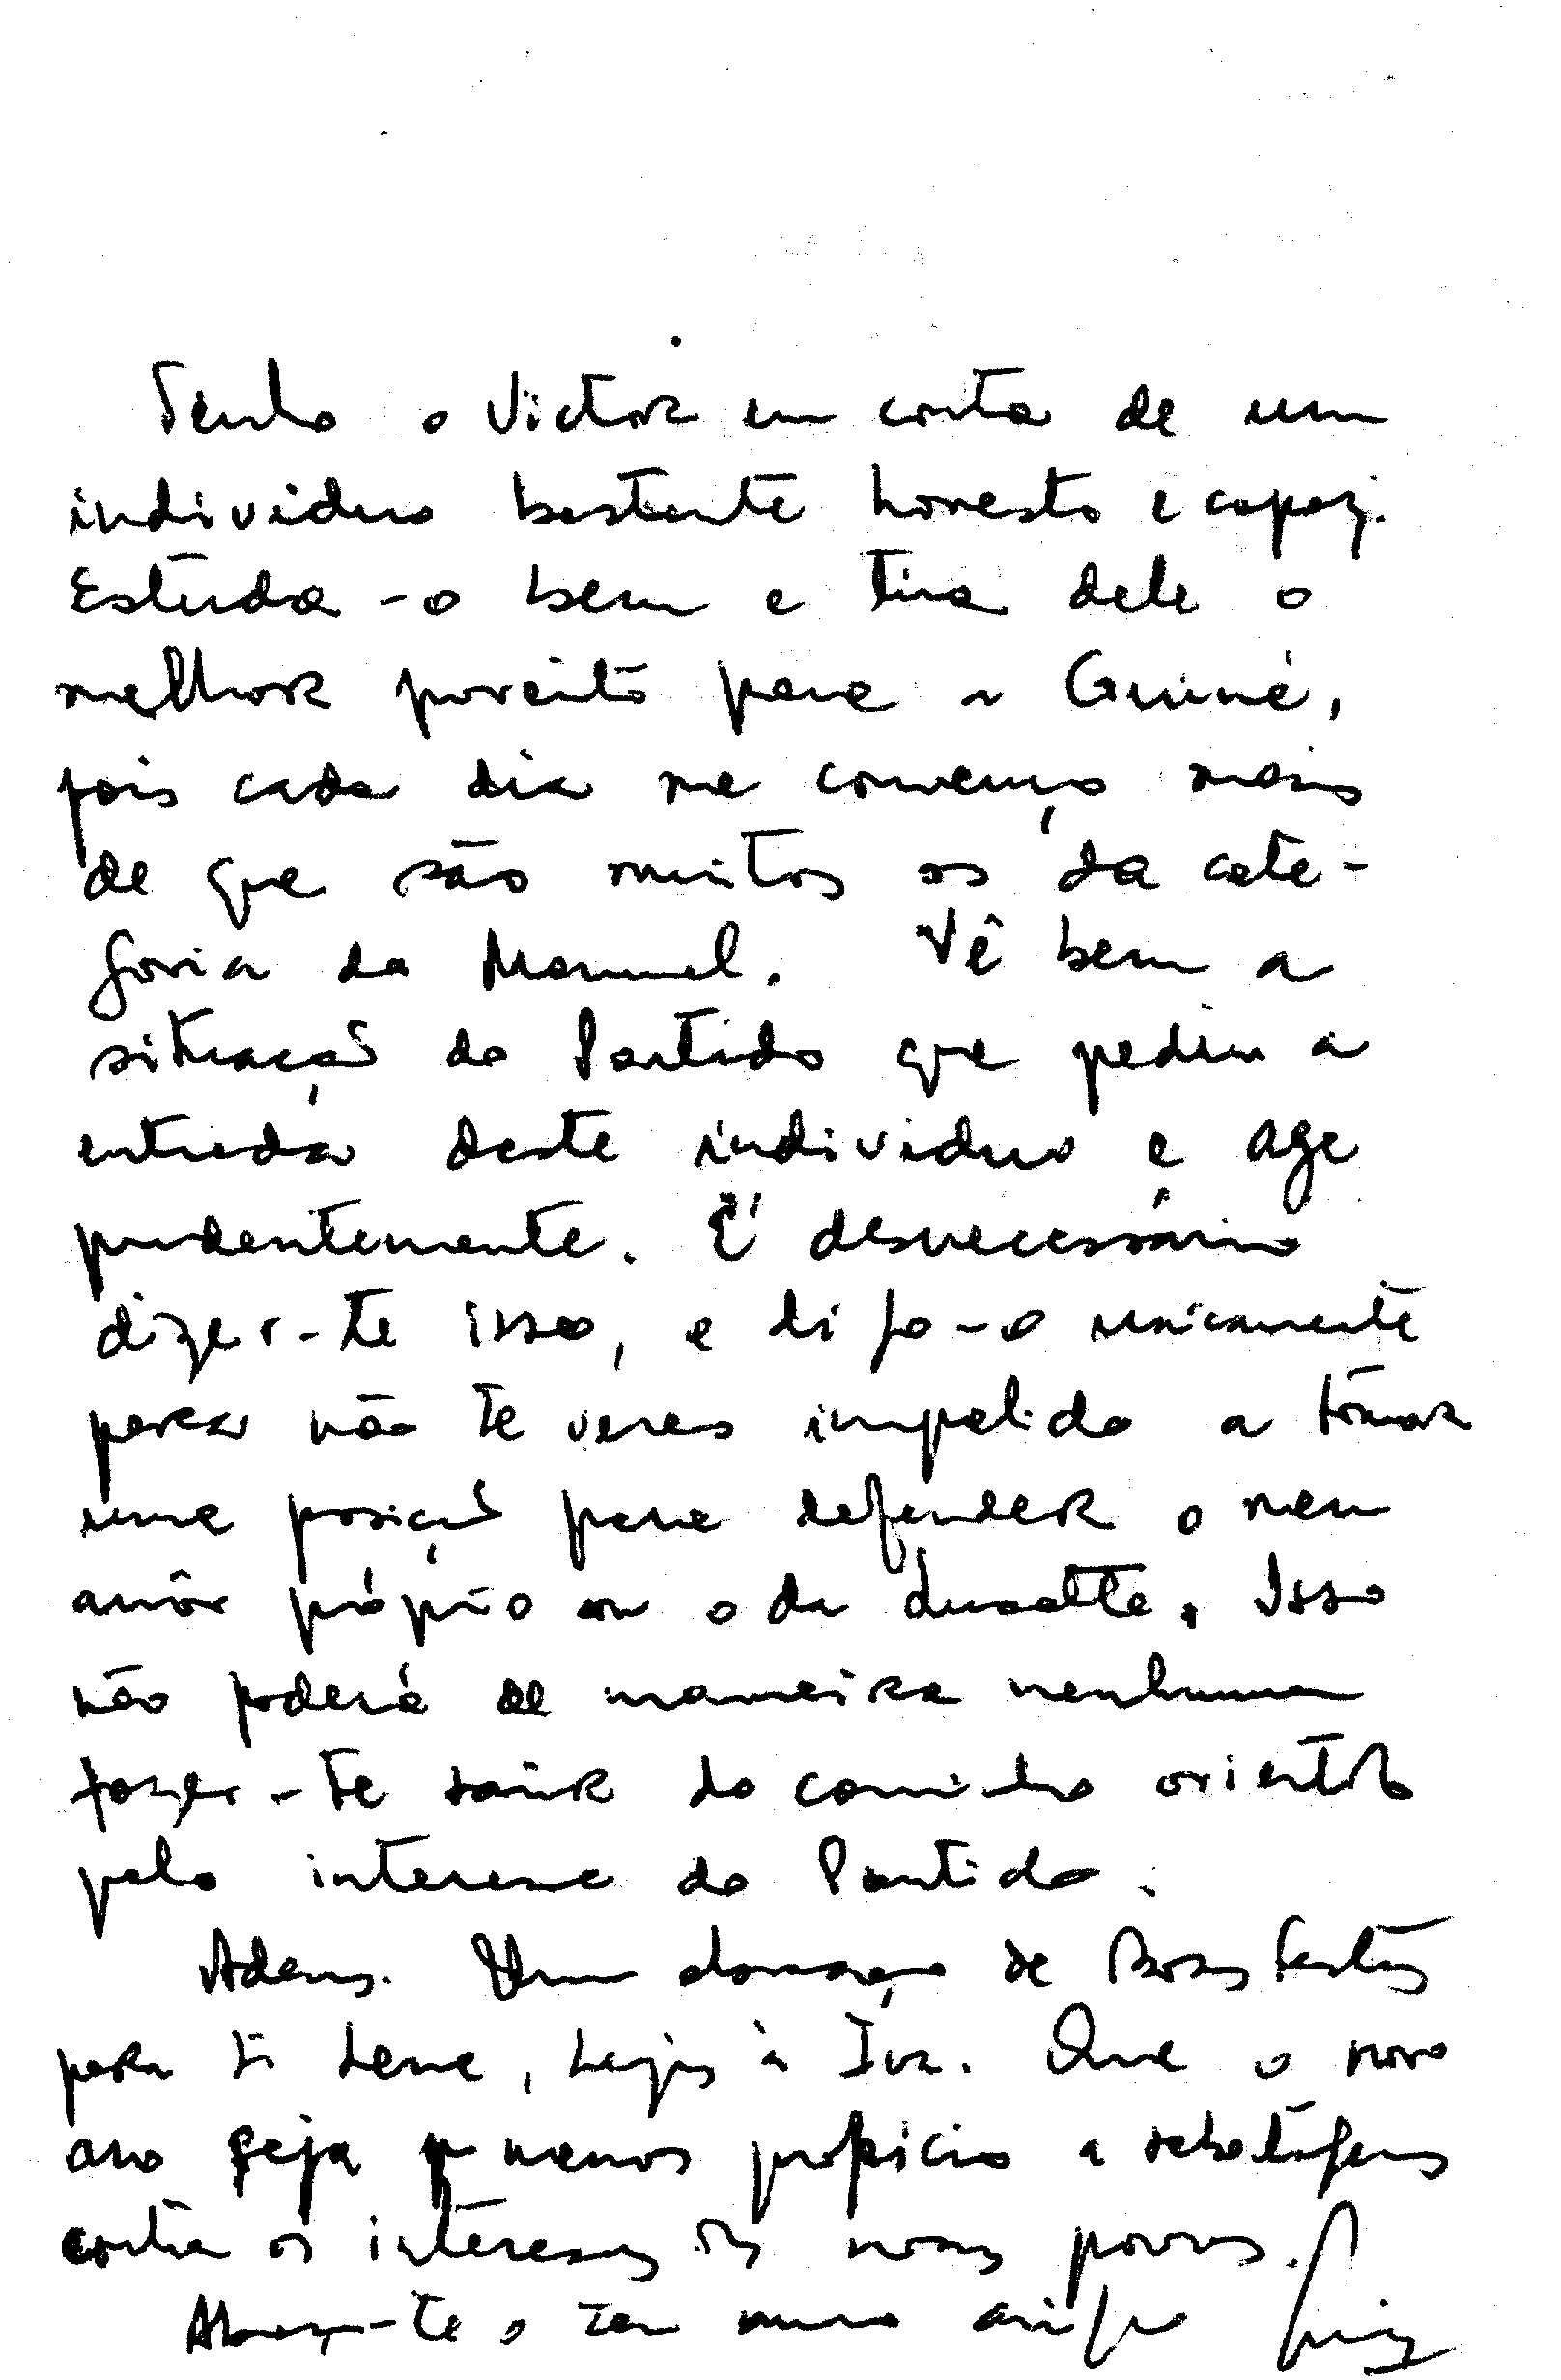 Tenho o Victor em conta de um
individuo bastante honesto e capaz.
Estuda-o bem e tira dele o
melhor proveito para a Guiné,
pois cada dia me convenço mais
de que são muitos os da cate-
goria do Manuel. Vê bem a
situação do Partido que pediu a
entrada deste individuo e age
prudentemente. É desnecessário
dizer-te isso, e digo-o unicamente
para não te veres impelido a tomar
uma posição para defender o meu
amôr próprio ou o da Lucette. Isso
não poderá de maneira nenhuma
fazer-te sair do caminho orientado
pelo interesse do Partido.
Adeus. Um abraço de Boas Festas
para ti bem, beijos à Iva. Que o novo
ano seja menos propício a sabotagens
contra os interesses dos nossos povos.
Abraça-te o teu mano amigo